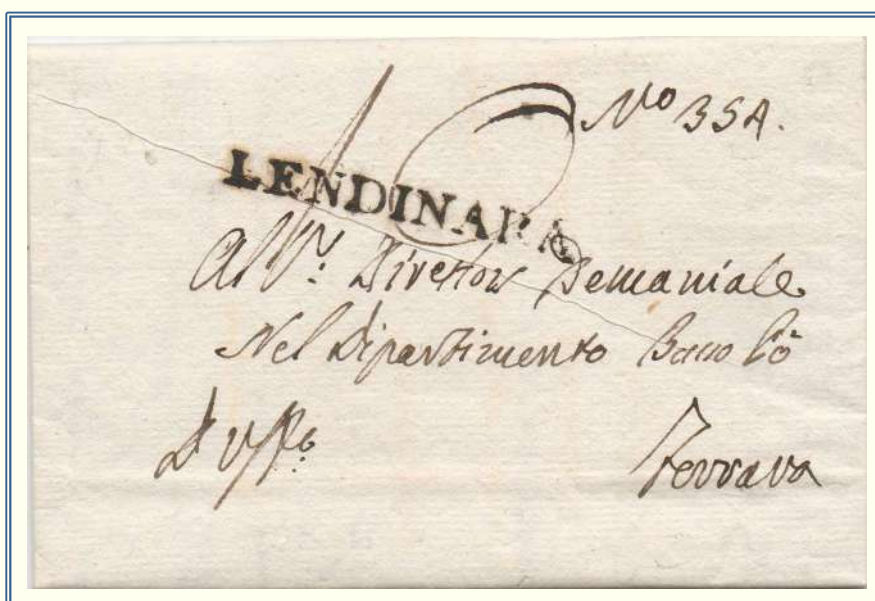 Nº 354.
LENDINARA
Al Sr. Direttore Demaniale
Nel Dipartimento Basso Pò
D'uffo.
Ferrara